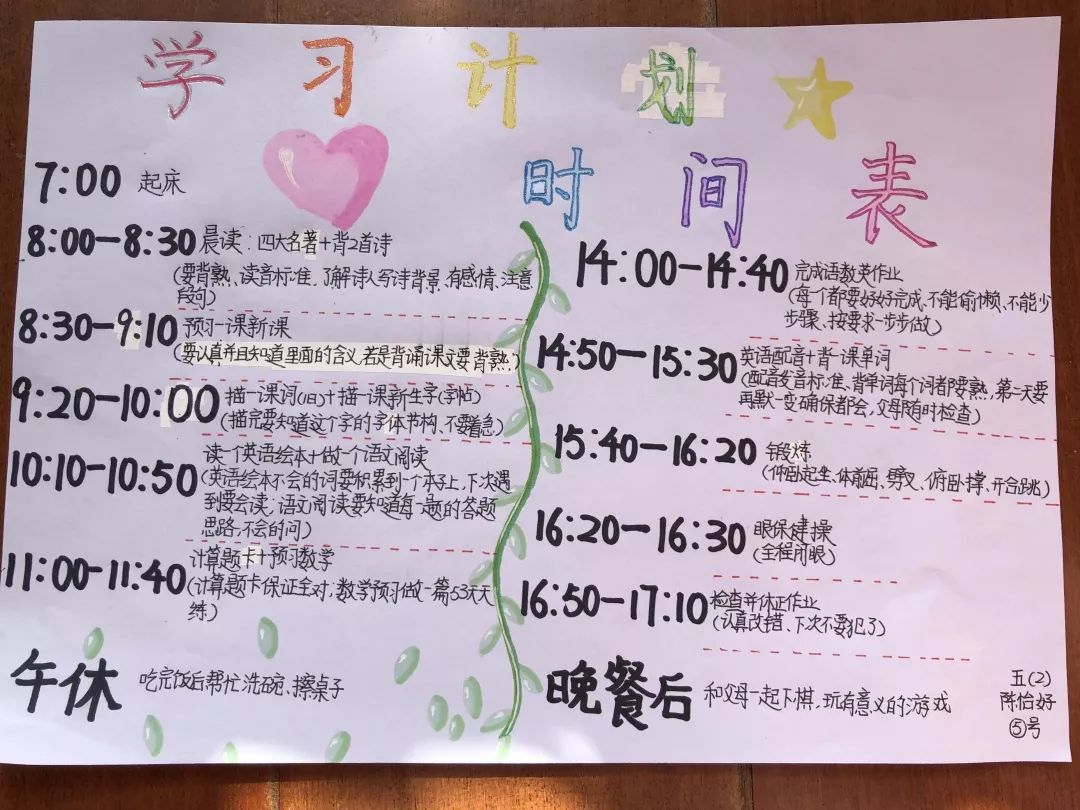 学习计划
时间表
7:00 起床
8:00-8:30 晨读：四大名著+背2首诗
(要背熟、读音标准，了解诗人写诗背景、有感情、注意
段句)
8:30-9:10 预习一课新课
(要认真并且知道里面的含义，若是背诵课文要背熟)
9:20-10:00 描一课词(旧)+描一课新生字(字帖)
(描完要知道这个字的字体节构，不要着急)
10:10-10:50 读一个英语绘本+做一个语文阅读
(英语绘本不会的词要积累到一个本子上，下次遇
到要会读；语文阅读要知道每一题的答题
思路，不会的问)
11:00-11:40 计算题卡+预习数学
(计算题卡保证全对；数学预习做一篇53天天
练)
午休 吃完饭后帮忙洗碗、擦桌子
14:00-14:40 完成语数英作业
(每个都要好好完成、不能偷懒、不能少
步骤、按要求一步步做)
14:50-15:30 英语配音+背一课单词
(配音发音标准、背单词每个词都要熟，第二天要
再默一变确保都会，父母随时检查)
15:40-16:20 锻炼
(仰卧起坐、体前屈、劈叉、俯卧撑、开合跳)
16:20-16:30 眼保健操
(全程闭眼)
16:50-17:10 检查并休正作业
(认真改措、下次不要犯了)
晚餐后 和父母一起下棋，玩有意义的游戏
五(2)
陈怡妤
⑤号